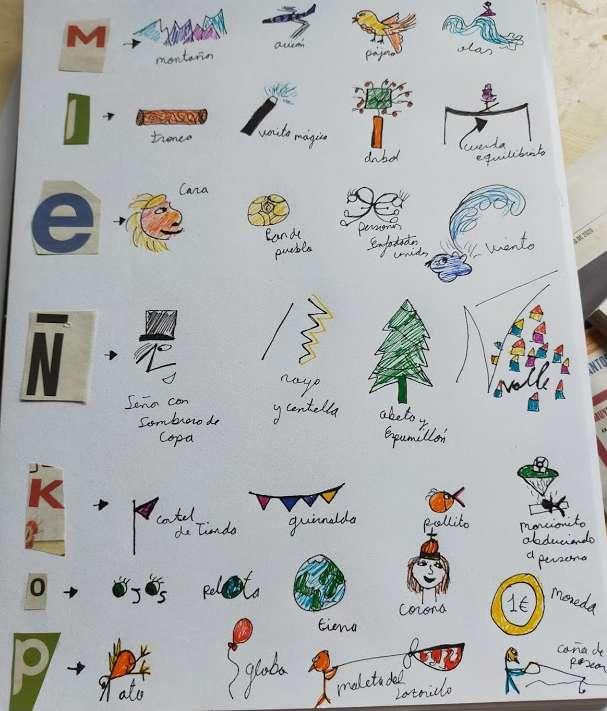 M
montañas
avión
pájaro
olas
I
tronco
varita mágica
árbol
cuerda
equilibrista
e
Cara
Pan de
pueblo
personas
Enfadadas
unidas
viento
Ñ
Señor con
Sombrero de
Copa
rayo
y centella
abeto y
Espumillón
valle
K
cartel
de Tienda
guirnalda
pollito
marcianito
abduciendo
a persona
o
ojos
pelota
tierra
corona
1€
Moneda
p
Pato
globo
maleta del
Lazarillo
caña de
pescar